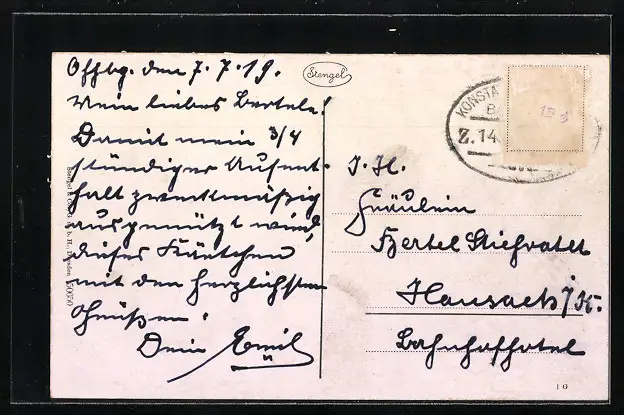 Offbg. den 7.7.19.
Mein liebes Bertele!
Damit mein 3/4
stündiger Aufent-
halt zweckmäßig
ausgenützt wird,
dieses Kärtchen
mit den herzlichsten
Grüßen.
Dein Emil
Stengel
Stengel & Co., G. m. b. H., Dresden 50050
KONSTA
Z. 14
15
I. H.
Fräulein
Hertel Stiefvatet
Hausach i/K.
Bahnhofhotel
1 G